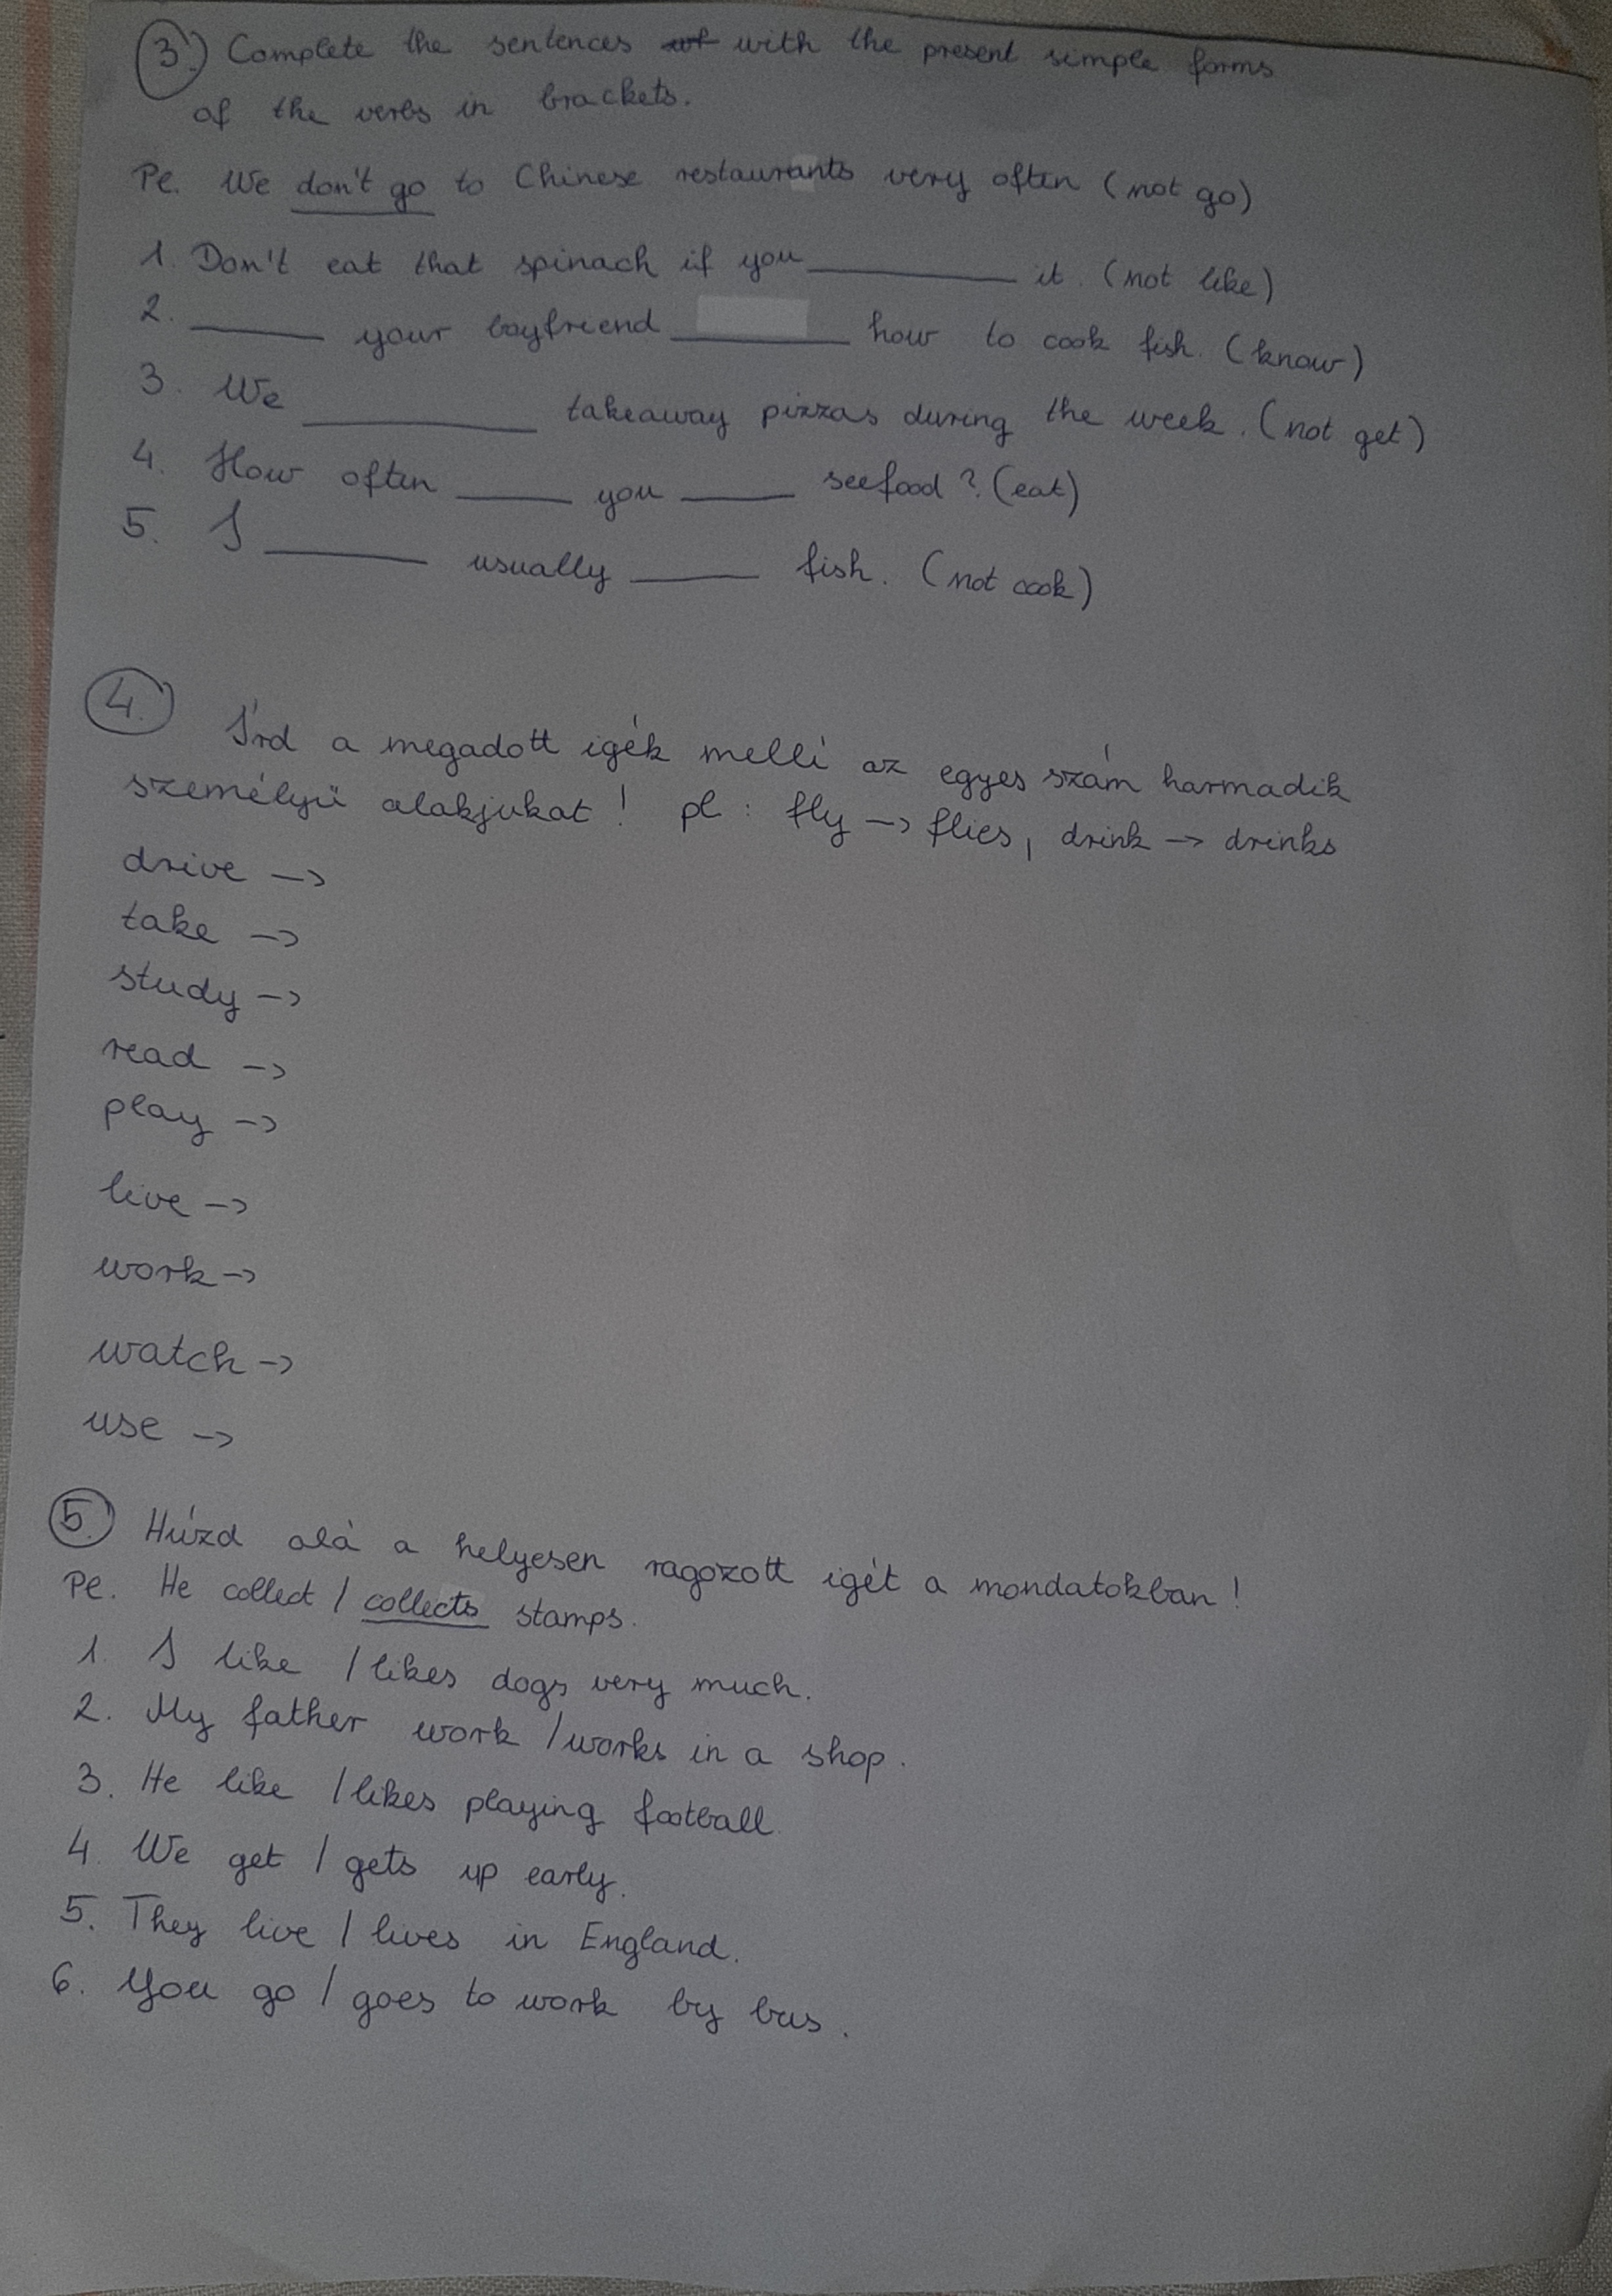 3.) Complete the sentences with the present simple forms
of the verbs in brackets.
Pl. We don't go to Chinese restaurants very often (not go)
1. Don't eat that spinach if you ________ it. (not like)
2. ________ your boyfriend ________ how to cook fish. (know)
3. We ________ takeaway pizzas during the week. (not get)
4. How often ________ you ________ seefood? (eat)
5. I ________ usually ________ fish. (not cook)
4.) Írd a megadott igék mellé az egyes szám harmadik
személyű alakjukat! pl: fly -> flies, drink -> drinks
drive ->
take ->
study ->
read ->
play ->
live ->
work ->
watch ->
use ->
5.) Húzd alá a helyesen ragozott igét a mondatokban!
Pl. He collect / collects stamps.
1. I like / likes dogs very much.
2. My father work / works in a shop.
3. He like / likes playing football.
4. We get / gets up early.
5. They live / lives in England.
6. You go / goes to work by bus.